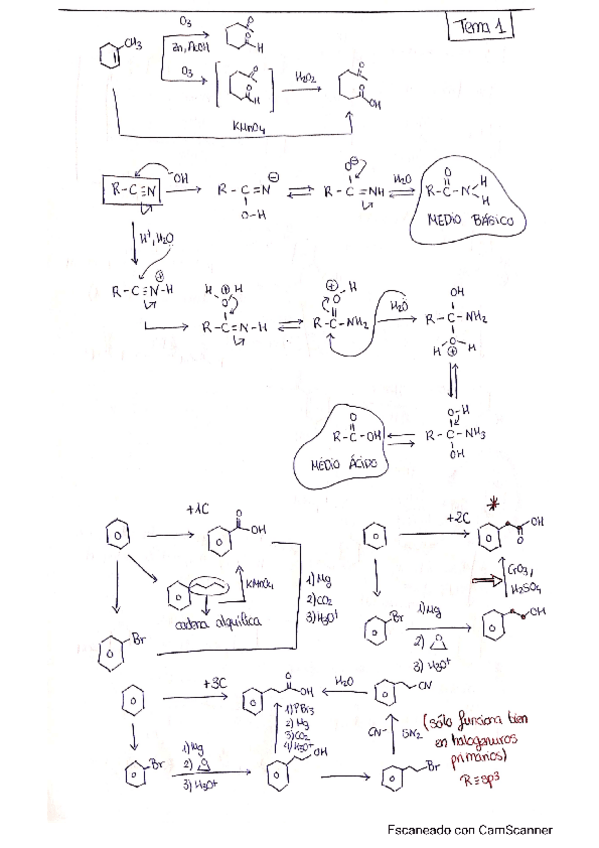 Tema 1
CH3
O3
Zn, AcOH
O
O
H
O3
O
O
H
H2O2
O
O
OH
KMnO4
R-C≡N
-OH
R-C=N ⊖
O-H
O⊖
R-C=NH
H2O
O
R-C-N
H
H
MEDIO BÁSICO
H+, H2O
R-C≡N-H
⊕
H ⊕ H
O
R-C=N-H
⊕ H
O
R-C-NH2
H2O
OH
R-C-NH2
H O H
⊕
O
R-C-OH
MEDIO ÁCIDO
O-H
R-C-NH3
OH
+1C
O
OH
KMnO4
cadena alquílica
Br
1) Mg
2) CO2
3) H3O+
+2C
*
OH
O
CrO3,
H2SO4
Br
1) Mg
2)
3) H3O+
OH
+3C
O
OH
H2O
CN
1) PBr3
2) Mg
3) CO2
4) H3O+
CN-
SN2
(sólo funciona bien
en halogenuros
primarios)
R≡sp3
Br
1) Mg
2)
3) H3O+
OH
Br
Escaneado con CamScanner